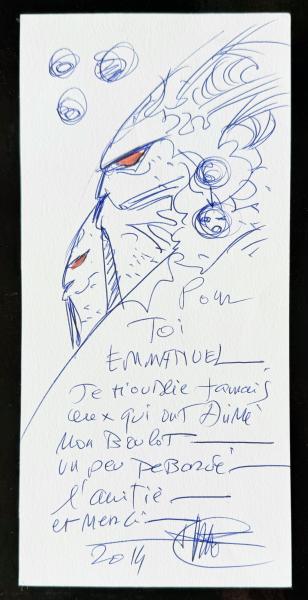 Pour
Toi
EMMANUEL
Je n'oublie jamais
ceux qui ont Aimé
Mon Boulot
un peu DeBordé
l'amitié
et Merci
2014